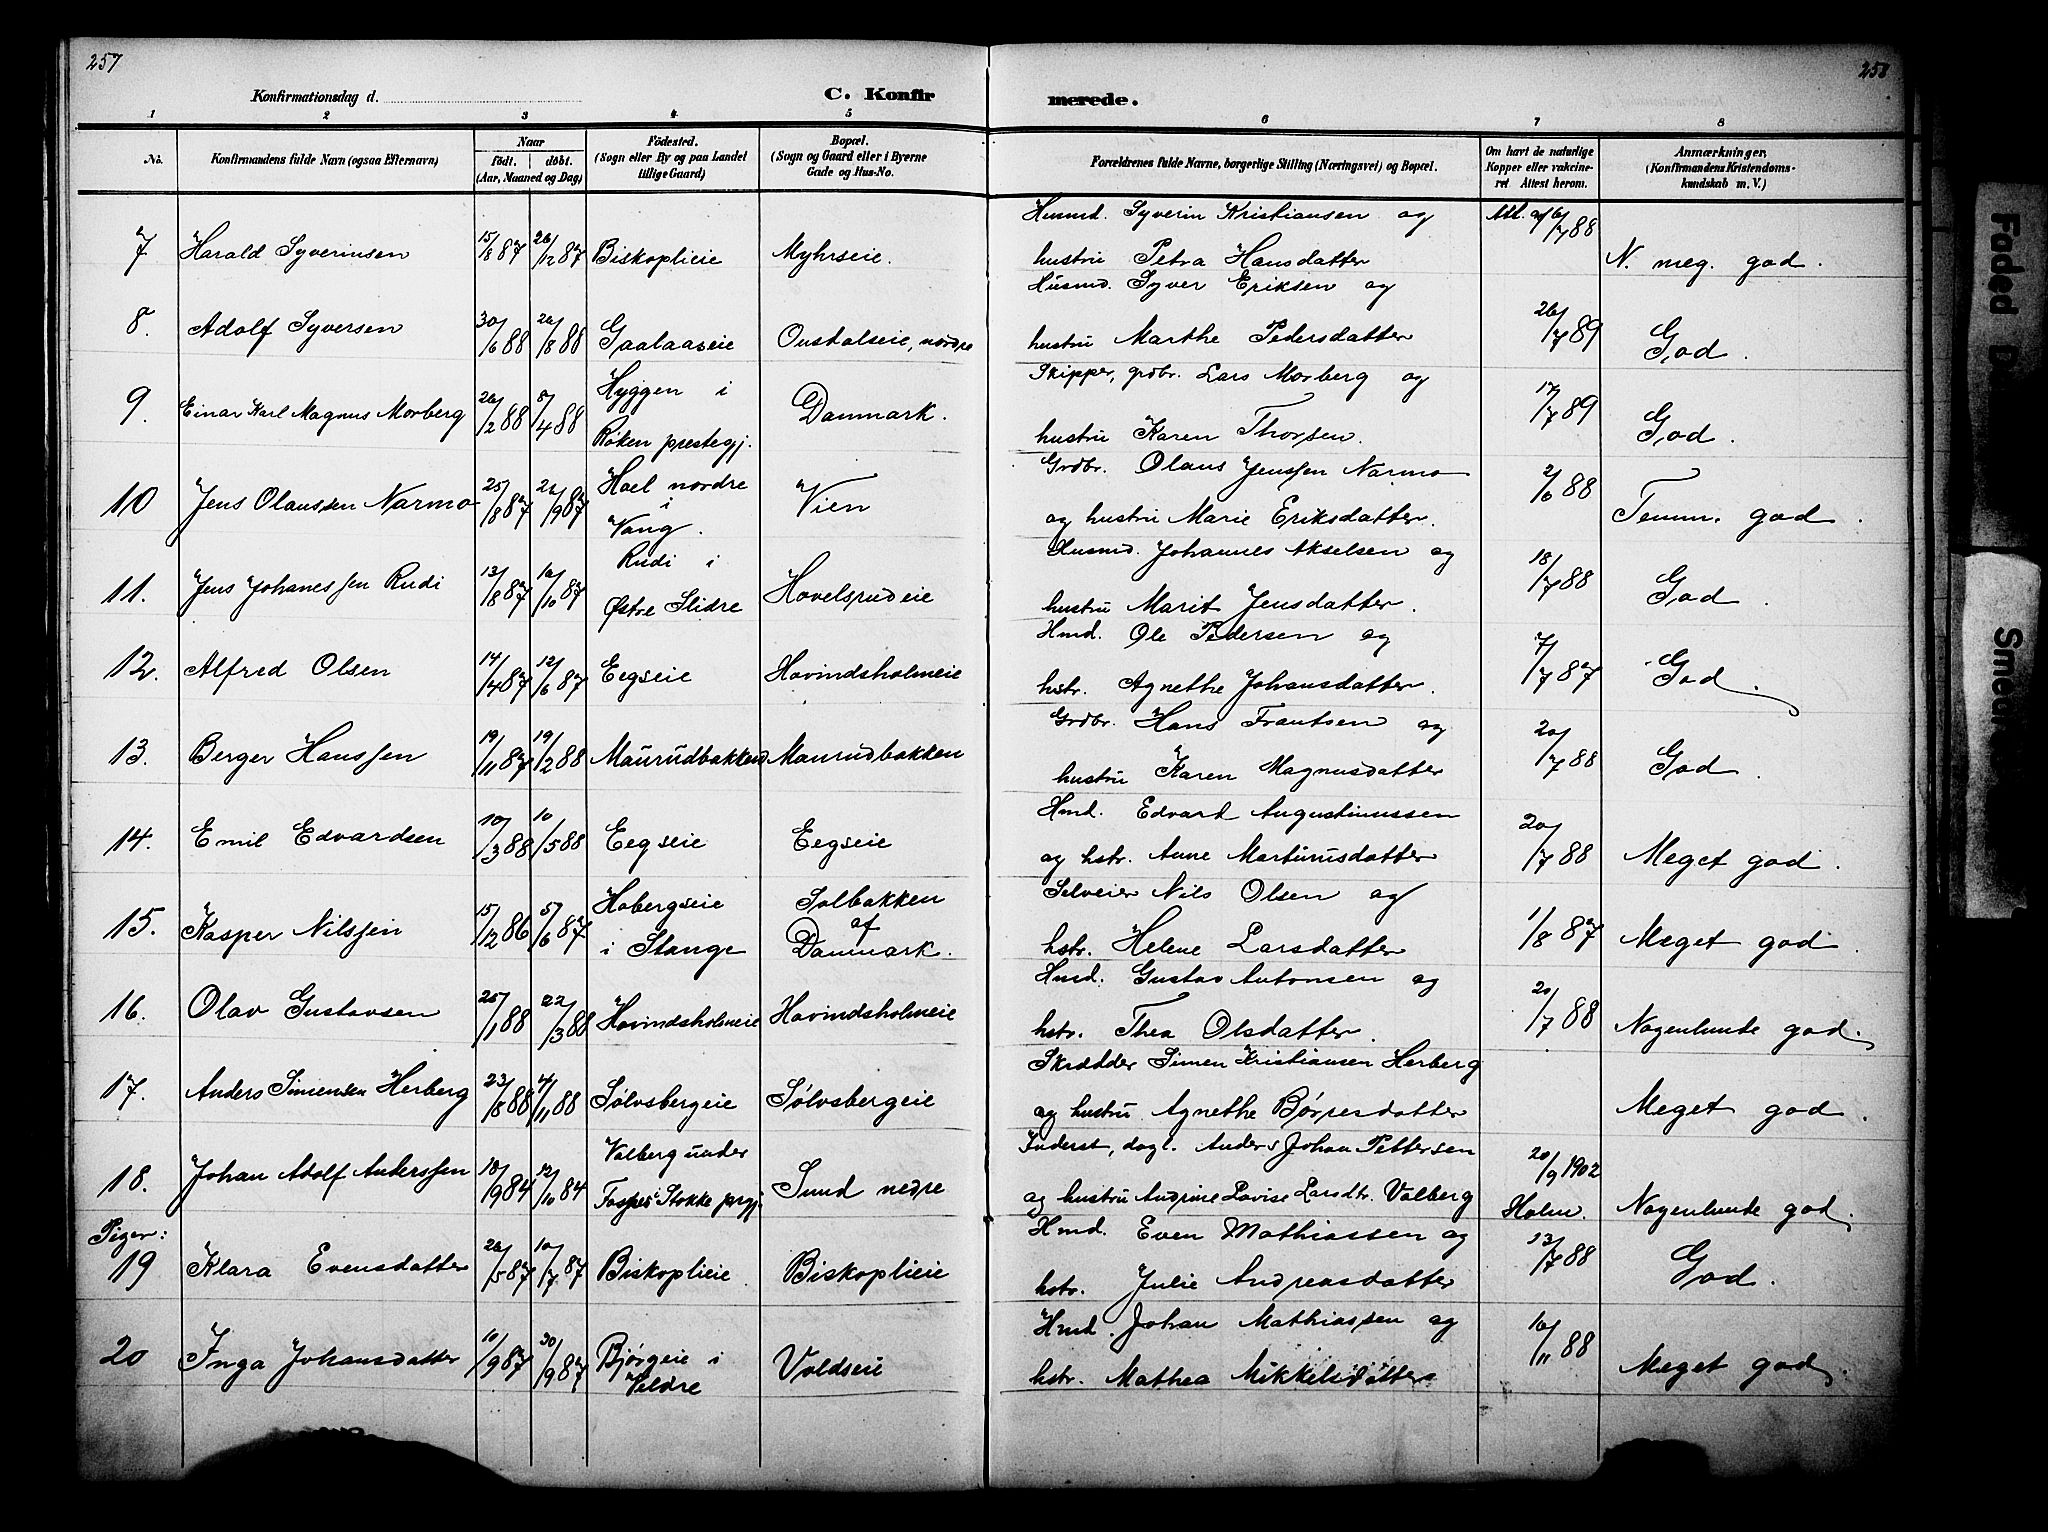 257
258
Konfirmationsdag d.
C. Konfirmerede.
1 2 3 4 5 6 7 8
No. Konfirmandens fulde Navn (ogsaa Efternavn) Naar født. døbt. (Aar, Maaned og Dag) Fødested. (Sogn eller By og paa Landet tillige Gaard) Bopæl. (Sogn og Gaard eller i Byerne Gade og Hus-No. Forældrenes fulde Navne, borgerlige Stilling (Næringsvei) og Bopæl. Om havt de naturlige Kopper eller vakcineret Attest herom. Anmærkninger. (Konfirmandens Kristendomskundskab m. V.)
Husmd. Syverin Kristiansen og
7 Harald Syverinsen 15/8 87 26/12 87 Biskoplieie Myhrseie. hustru Petra Hansdatter /7 88 N. meg. god.
Husmd. Syver Eriksen og
8. Adolf Syversen 30/6 88 26/8 88 Gaalaaseie Oustalseie, nordre hustru Marthe Pedersdatter 26/7 89 God.
Hyggen i Skipper, grdbr. Lars Morberg og
9. Einar Karl Magnus Morberg 26/2 88 8/4 88 Røken prestegj. Danmark. hustru Karen Thorsen. 17/7 89 God.
Hoel nordre Grdbr. Olaus Jenssen Narmo
10 Jens Olaussen Narmo 25/8 87 /9 87 i Vang. Vien og hustru Marie Eriksdatter. 2/6 88 Temm. god.
Rudi i Husmd. Johannes Akselsen og
11. Jens Johanessen Rudi 13/8 87 16/10 87 Østre Slidre Hovelsrudeie hustru Marit Jensdatter. 18/7 88 God.
Hmd. Ole Pedersen og
12. Alfred Olsen 14/4 87 12/6 87 Eegseie Hovindsholmeie hstr. Agnethe Johansdatter. 7/7 87 God.
Grdbr. Hans Frantsen og
13. Berger Hanssen 19/11 87 19/2 88 Maurudbakken Maurudbakken hustru Karen Magnusdatter 20/7 88 God.
Hmd. Edvart Augustinussen
14. Emil Edvardsen 10/3 88 10/5 88 Eegseie Eegseie og hstr. Anne Martinusdatter 20/7 88 Meget god.
Hobergseie Solbakken Selveier Nils Olsen og
15. Kasper Nilssen 15/12 86 5/6 87 i Stange af Danmark. hstr. Helene Larsdatter 1/8 87 Meget god.
Hmd. Gustav Antonsen og
16. Olav Gustavsen 25/1 88 22/3 88 Hovindsholmeie Hovindsholmeie hstr. Thea Olsdatter. 20/7 88 Nogenlunde god.
Skrædder Simen Kristiansen Herberg
17. Anders Simensen Herberg 23/8 88 4/11 88 Sølvsbergeie Sølvsbergeie og hustru Agnethe Børresdatter Meget god.
Valberg under Inderst, dagl. Anders Johan Pettersen 20/9 1902
18. Johan Adolf Anderssen 18/9 84 12/10 84 Stokke prgj. Sund nedre og hustru Andrine Lovise Larsdtr. Valberg Holm. Nogenlunde god.
Piger: Hmd. Even Mathiassen og
19 Klara Evensdatter 26/5 87 10/7 87 Biskoplieie Biskoplieie hstr. Julie Andreasdatter 13/7 88 God.
Hmd. Johan Mathiassen og
20 Inga Johansdatter 10/9 87 30/9 87 Bjørgeie i Veldre Voldseie hstr. Mathea Mikkelsdatter 16/11 88 Meget god.
Faded